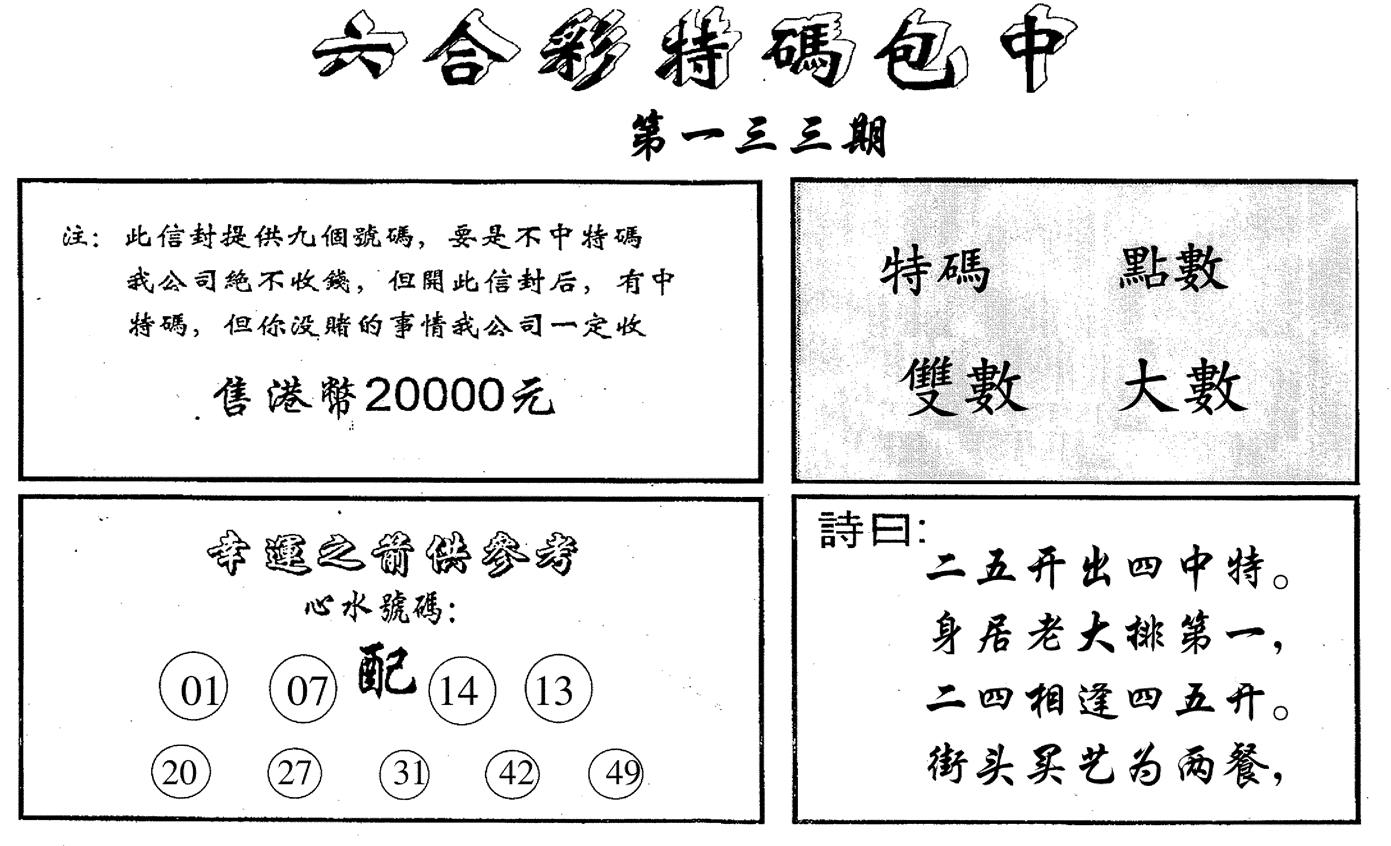 六合彩特碼包中
第一三三期
注：此信封提供九個號碼，要是不中特碼
我公司絶不收錢，但開此信封后，有中
特碼，但你没賭的事情我公司一定收
售港幣20000元
特碼 點數
雙數 大數
幸運之箭供參考
心水號碼：
01 07 配 14 13
20 27 31 42 49
詩曰：
二五开出四中特。
身居老大排第一，
二四相逢四五开。
街头买艺为两餐，